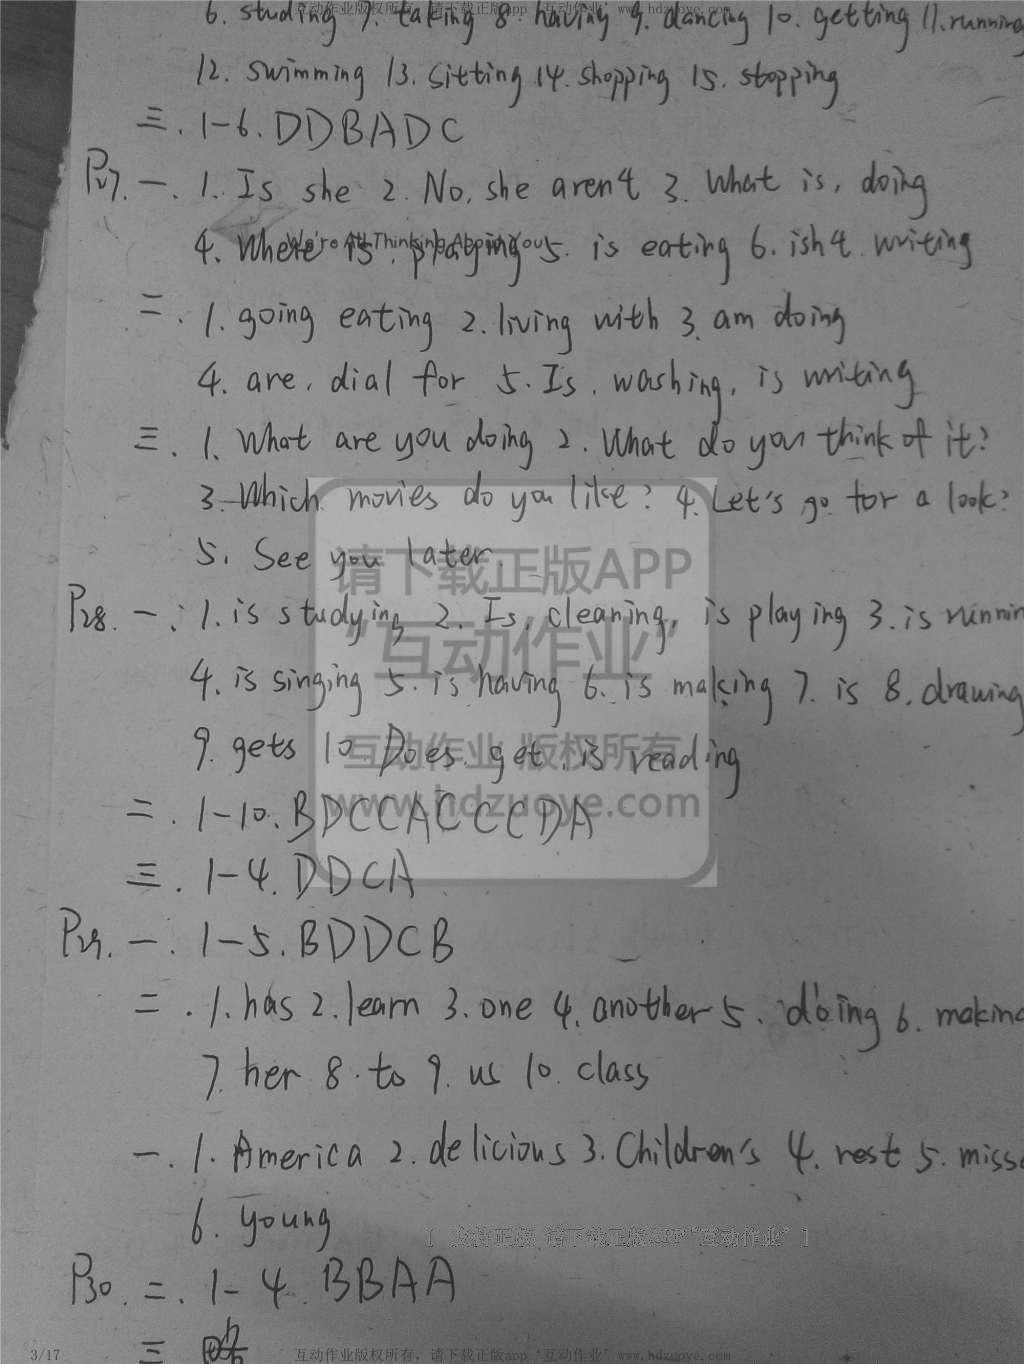 互动作业版权所有，请下载正版app“互动作业”www.hdzuoye.com
6. studing 7. taking 8. having 9. dancing 10. getting 11. running
12. swimming 13. sitting 14. shopping 15. stopping
三. 1-6. DDBADC
P27. 一. 1. Is she 2. No, she aren't 3. What is, doing
We're All Thinking About You
4. Where is playing 5. is eating 6. isn't writing
二. 1. going eating 2. living with 3. am doing
4. are, dial for 5. Is, washing, is writing
三. 1. What are you doing 2. What do you think of it?
3. Which movies do you like? 4. Let's go for a look?
5. See you later.
请下载正版APP
“互动作业”
互动作业 版权所有
www.hdzuoye.com
P28. 一. 1. is studying 2. Is, cleaning, is playing 3. is runnin
4. is singing 5. is having 6. is making 7. is 8. drawing
9. gets 10. Does, get, is reading
二. 1-10. BDCCACCCDA
三. 1-4. DDCA
P29. 一. 1-5. BDDCB
二. 1. has 2. learn 3. one 4. another 5. doing 6. making
7. her 8. to 9. us 10. class
一. 1. America 2. delicious 3. Children's 4. rest 5. miss
6. young
[ 支持正版 请下载正版APP“互动作业” ]
P30. 二. 1-4. BBAA
三
3/17
互动作业版权所有，请下载正版app“互动作业”www.hdzuoye.com